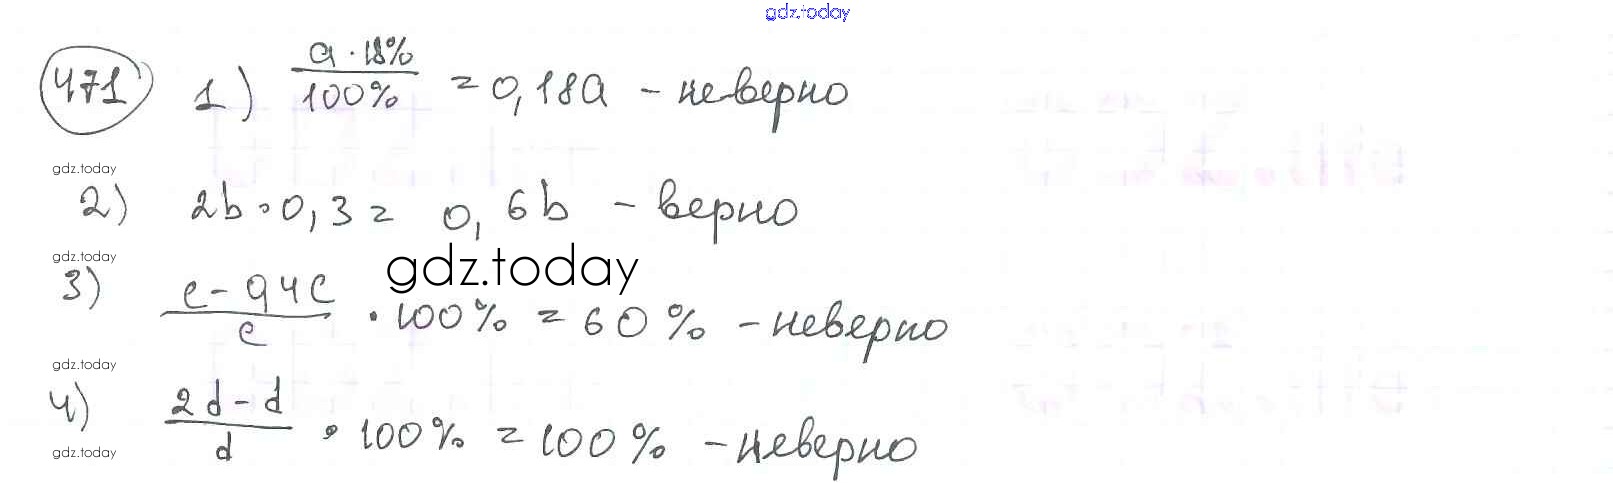 gdz.today
471 1) a · 18% / 100% = 0,18a - неверно
gdz.today
2) 2b · 0,3 = 0,6b - верно
gdz.today
gdz.today
3) c - 0,4c / c · 100% = 60% - неверно
gdz.today
4) 2d - d / d · 100% = 100% - неверно
gdz.today